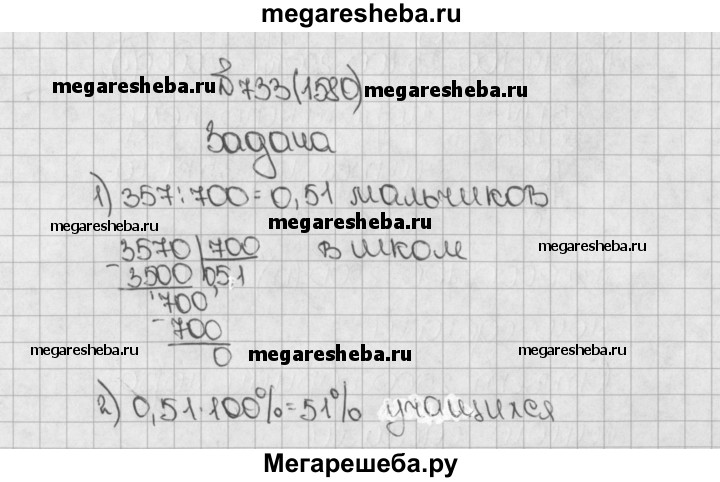 megaresheba.ru
megaresheba.ru № 733(1580) megaresheba.ru
Задача
1) 357:700=0,51 мальчиков
megaresheba.ru megaresheba.ru megaresheba.ru
3570 | 700 в школ
-3500 0,51
700
-700
megaresheba.ru megaresheba.ru megaresheba.ru
0
2) 0,51·100%=51% учащихся
Мегарешеба.ру